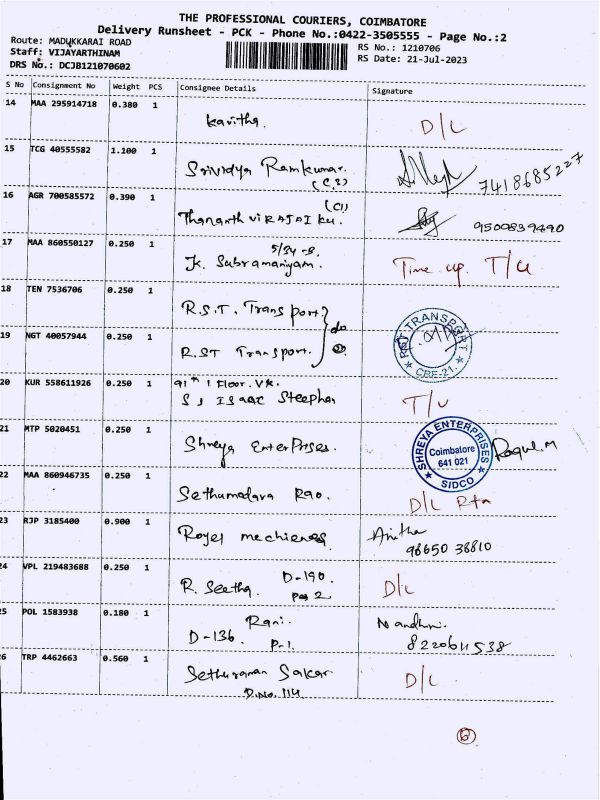 THE PROFESSIONAL COURIERS, COIMBATORE
Delivery Runsheet - PCK - Phone No.:0422-3505555 - Page No.:2
Route: MADUKKARAI ROAD RS No.: 1210706
Staff: VIJAYARTHINAM RS Date: 21-Jul-2023
DRS No.: DCJB121070602
S No Consignment No Weight PCS Consignee Details Signature
14 MAA 295914718 0.380 1
Kavitha. D/L
15 TCG 40555582 1.100 1
Srividya Ramkumar. 7418685227
16 AGR 700585572 0.390 1
9500839490
17 MAA 860550127 0.250 1
K. Subramaniyam. Time up. T/u
18 TEN 7536706 0.250 1
R.S.T. Transport do
19 NGT 40057944 0.250 1
RST Transport. RST TRANSPORT CBE-21.
20 KUR 558611926 0.250 1
S J ISAAC Steephan T/u
21 MTP 5020451 0.250 1
Shreya Enterprises. SHREYA ENTERPRISES Coimbatore 641 021 SIDCO Ragul.M
22 MAA 860946735 0.250 1
Sethumadava Rao. D/L Rtn
23 RJP 3185400 0.900 1
Royel mechienes Anitha
98650 38810
24 VPL 219483688 0.250 1
R. Seetha. D-190. D/L
25 POL 1583938 0.180 1
Rani. Nandhini.
D-136. P-1. 8220611538
26 TRP 4462663 0.560 1
Sethuraman Sakar. D/L
D.No. 114